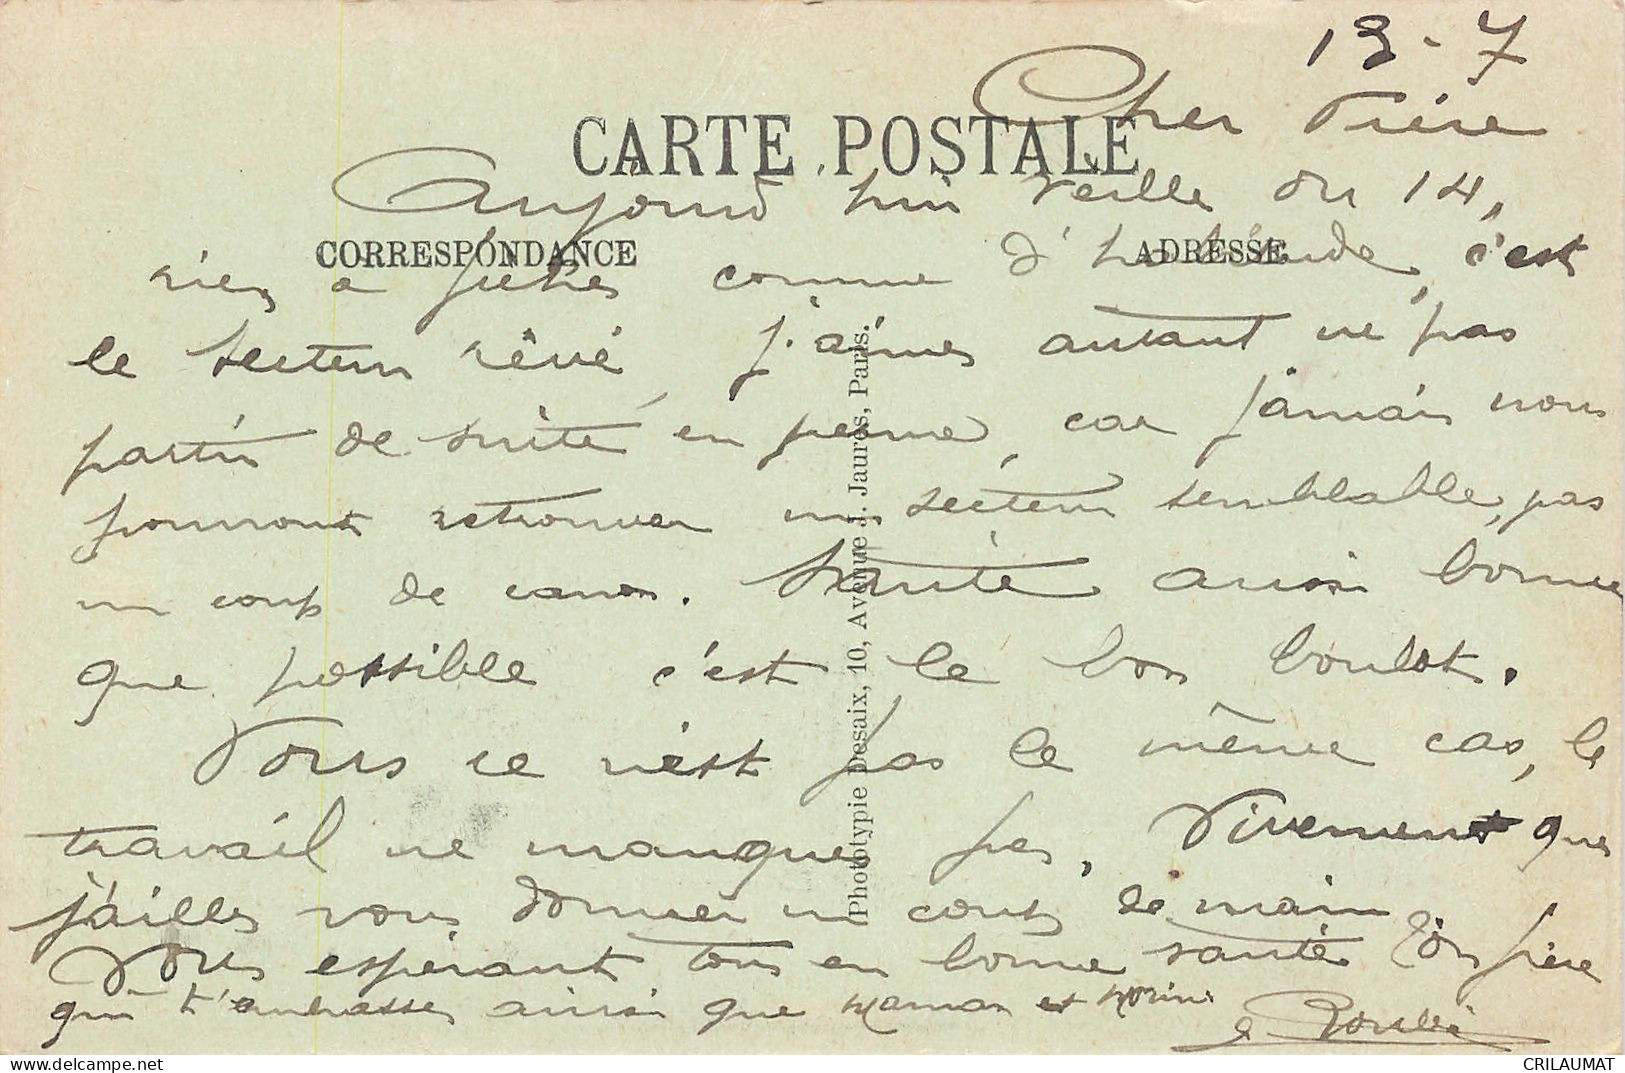 13-7
Cher Frère
CARTE POSTALE
Aujourd'hui veille du 14,
CORRESPONDANCE
ADRESSE
rien a comme d'habitude, c'est
le secteur rêvé, j'aimes autant ne pas
partir de suite en perme, car jamais nous
pourrons retrouver un secteur semblable, pas
un coup de canon. Santé aussi bonne
que possible c'est le bon boulot.
Vous ce n'est pas le même cas, le
travail ne manques pas, Vivement que
j'ailles vous donner un coup de main
Vous espérant tous en bonne santé Ton frère
qui t'embrasses ainsi que Maman et
Phototypie Desaix, 10, Avenue J. Jaurès, Paris.
CRILAUMAT
delcampe.net